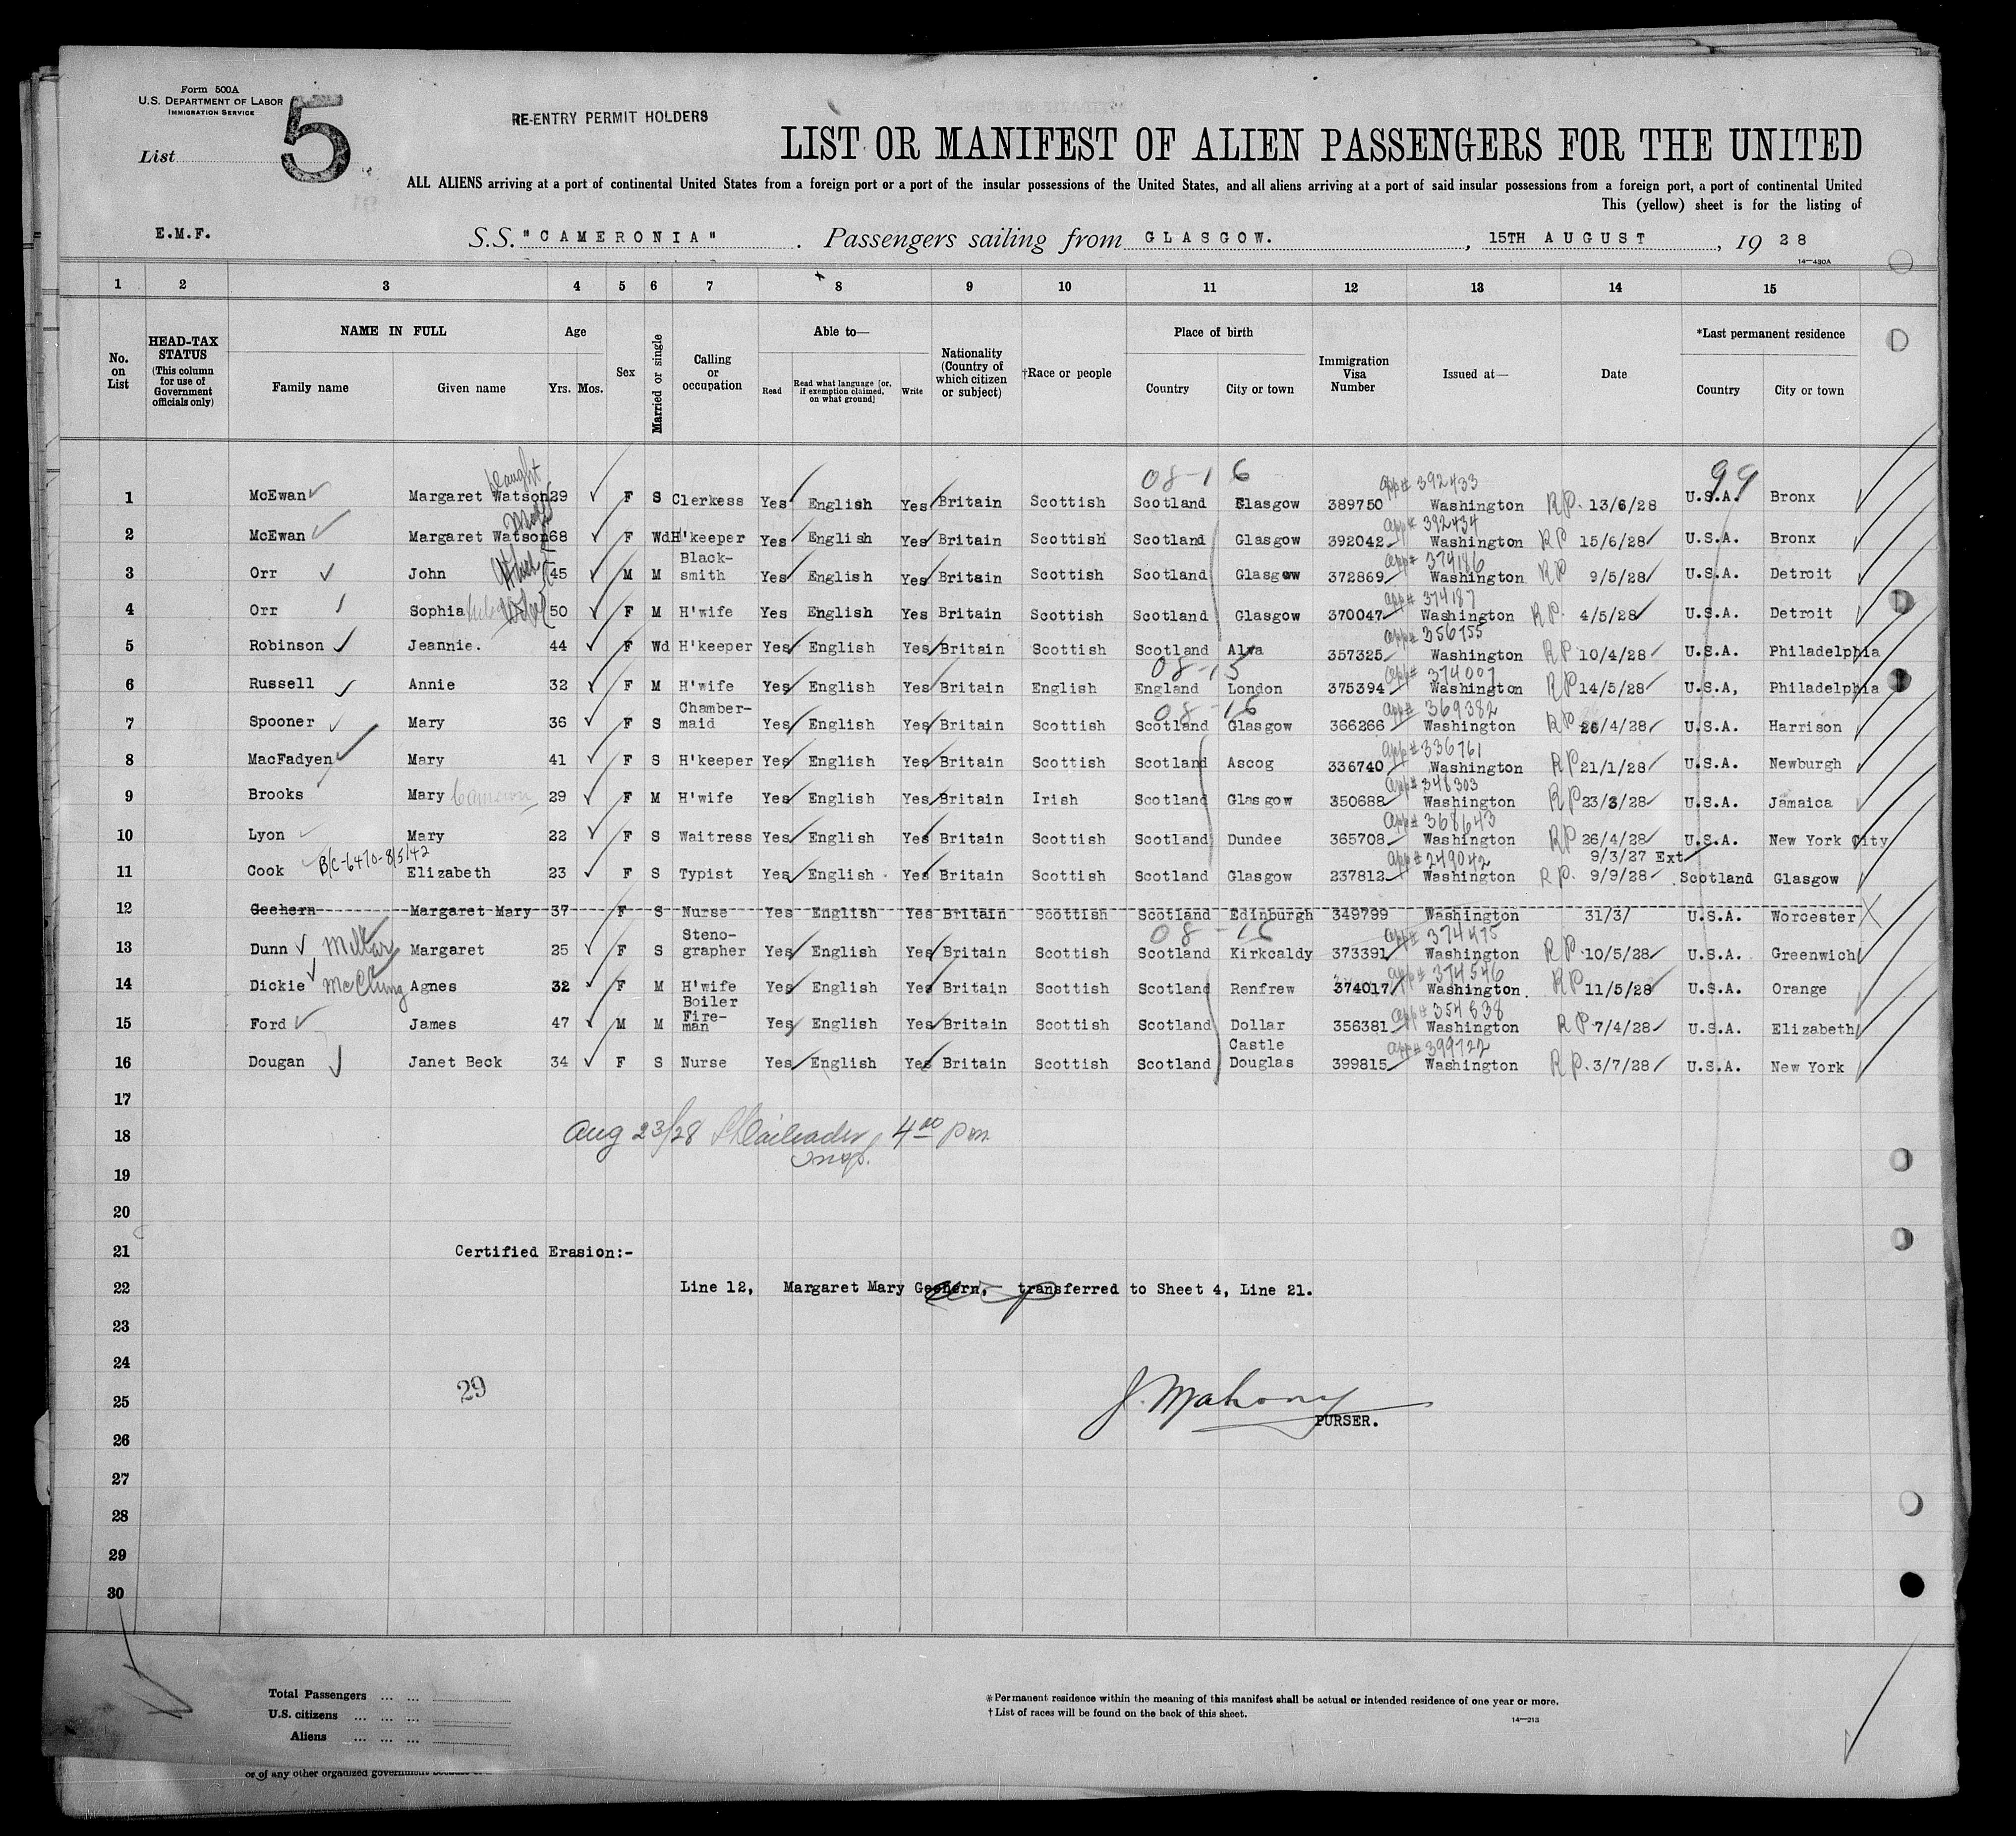 Form 500A
U.S. DEPARTMENT OF LABOR
IMMIGRATION SERVICE
List 5
RE-ENTRY PERMIT HOLDERS
LIST OR MANIFEST OF ALIEN PASSENGERS FOR THE UNITED
ALL ALIENS arriving at a port of continental United States from a foreign port or a port of the insular possessions of the United States, and all aliens arriving at a port of said insular possessions from a foreign port, a port of continental United
This (yellow) sheet is for the listing of
E.M.F. S.S. "CAMERONIA" . Passengers sailing from GLASGOW. , 15TH AUGUST , 19 28
14—430A
1 2 3 4 5 6 7 8 9 10 11 12 13 14 15
No. on List
HEAD-TAX STATUS (This column for use of Government officials only)
NAME IN FULL
Family name Given name
Age
Yrs. Mos.
Sex
Married or single
Calling or occupation
Able to—
Read Read what language [or, if exemption claimed, on what ground] Write
Nationality (Country of which citizen or subject)
†Race or people
Place of birth
Country City or town
Immigration Visa Number
Issued at—
Date
*Last permanent residence
Country City or town
Daught 08-16 App# 392433 99
1 McEwan Margaret Watson 29 F S Clerkess Yes English Yes Britain Scottish Scotland Glasgow 389750 Washington RP. 13/6/28 U.S.A. Bronx
App# 392434
2 McEwan Margaret Watson 68 F Wd H'keeper Yes English Yes Britain Scottish Scotland Glasgow 392042 Washington RP 15/6/28 U.S.A. Bronx
App# 374186
3 Orr John 45 M M Black-smith Yes English Yes Britain Scottish Scotland Glasgow 372869 Washington RP 9/5/28 U.S.A. Detroit
App# 374187
4 Orr Sophia 50 F M H'wife Yes English Yes Britain Scottish Scotland Glasgow 370047 Washington RP. 4/5/28 U.S.A. Detroit
App# 356755
5 Robinson Jeannie. 44 F Wd H'keeper Yes English Yes Britain Scottish Scotland Alva 357325 Washington RP 10/4/28 U.S.A. Philadelphia
08-15 App# 374007
6 Russell Annie 32 F M H'wife Yes English Yes Britain English England London 375394 Washington RP 14/5/28 U.S.A, Philadelphia
08-16 App# 369382
7 Spooner Mary 36 F S Chamber-maid Yes English Yes Britain Scottish Scotland Glasgow 366266 Washington RP 26/4/28 U.S.A. Harrison
App# 336761
8 MacFadyen Mary 41 F S H'keeper Yes English Yes Britain Scottish Scotland Ascog 336740 Washington RP 21/1/28 U.S.A. Newburgh
App# 348303
9 Brooks Mary Cameron 29 F M H'wife Yes English Yes Britain Irish Scotland Glasgow 350688 Washington RP 23/3/28 U.S.A. Jamaica
App# 368643
10 Lyon Mary 22 F S Waitress Yes English Yes Britain Scottish Scotland Dundee 365708 Washington RP 26/4/28 U.S.A. New York City
B/C-6470-8/5/42 App# 249042 9/3/27 Ext
11 Cook Elizabeth 23 F S Typist Yes English Yes Britain Scottish Scotland Glasgow 237812 Washington RP. 9/9/28 Scotland Glasgow
12 Geehern Margaret Mary 37 F S Nurse Yes English Yes Britain Scottish Scotland Edinburgh 349799 Washington 31/3/ U.S.A. Worcester
08-16 App# 374475
13 Dunn Millar Margaret 25 F S Steno-grapher Yes English Yes Britain Scottish Scotland Kirkcaldy 373391 Washington RP. 10/5/28 U.S.A. Greenwich
App# 374546
14 Dickie McClung Agnes 32 F M H'wife Yes English Yes Britain Scottish Scotland Renfrew 374017 Washington. RP 11/5/28 U.S.A. Orange
App# 354638
15 Ford James 47 M M Boiler Fire-man Yes English Yes Britain Scottish Scotland Dollar 356381 Washington RP 7/4/28 U.S.A. Elizabeth
App# 399722
16 Dougan Janet Beck 34 F S Nurse Yes English Yes Britain Scottish Scotland Castle Douglas 399815 Washington RP. 3/7/28 U.S.A. New York
17
18 Aug 23/28 4 00 pm
Insp.
19
20
21 Certified Erasion:-
22 Line 12, Margaret Mary Geehern, transferred to Sheet 4, Line 21.
23
24
29
25 J. Mahony
PURSER.
26
27
28
29
30
Total Passengers ... ...
U.S. citizens ... ... ...
Aliens ... ... ...
*Permanent residence within the meaning of this manifest shall be actual or intended residence of one year or more.
†List of races will be found on the back of this sheet.
14—213
or of any other organized government